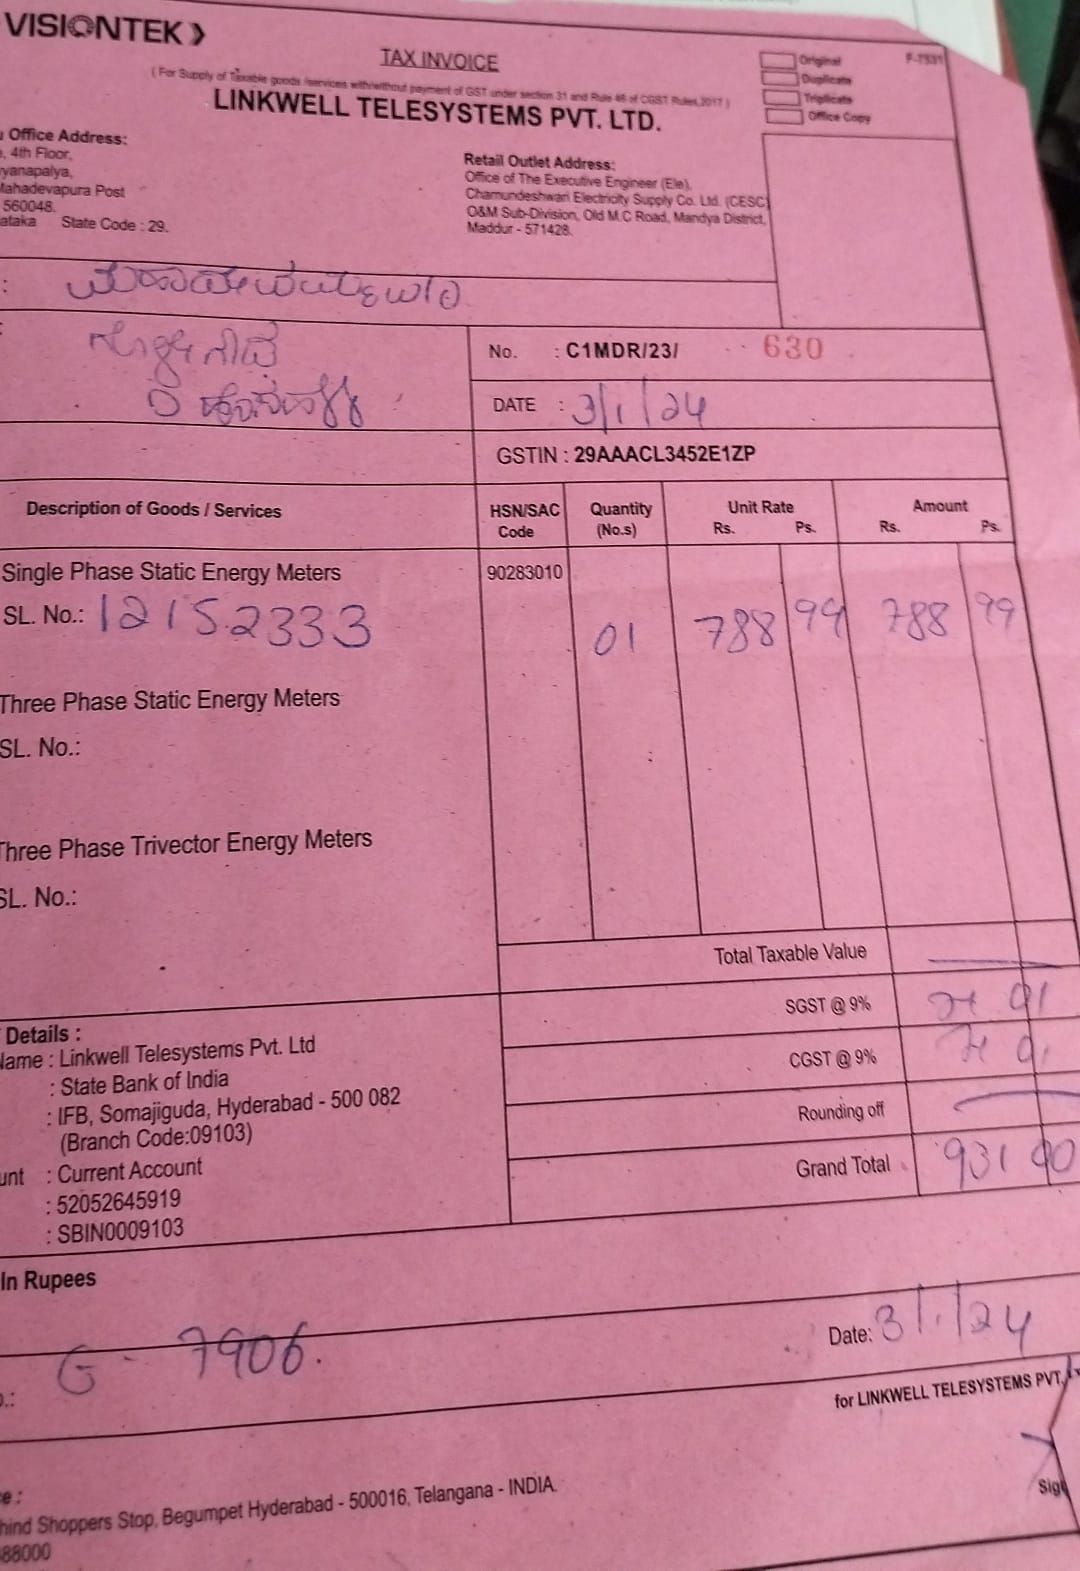 VISIONTEK
TAX INVOICE
( For Supply of Taxable goods /services with/without payment of GST under section 31 and Rule 46 of CGST Rules,2017 )
LINKWELL TELESYSTEMS PVT. LTD.
Original
Duplicate
Triplicate
Office Copy
F-TS31
Office Address:
4th Floor,
yanapalya,
Mahadevapura Post
560048.
ataka State Code : 29.
Retail Outlet Address:
Office of The Executive Engineer (Ele),
Chamundeshwari Electricity Supply Co. Ltd. (CESC)
O&M Sub-Division, Old M.C Road, Mandya District,
Maddur - 571428.
No. : C1MDR/23/ 630
DATE : 3/1/24
GSTIN : 29AAACL3452E1ZP
Description of Goods / Services HSN/SAC Code Quantity (No.s) Unit Rate Rs. Ps. Amount Rs. Ps.
Single Phase Static Energy Meters 90283010
SL. No.: 12152333 01 788 99 788 99
Three Phase Static Energy Meters
SL. No.:
Three Phase Trivector Energy Meters
SL. No.:
Total Taxable Value
SGST @ 9% 71 01
CGST @ 9% 71 01
Rounding off
Grand Total 931 00
Details :
Name : Linkwell Telesystems Pvt. Ltd
: State Bank of India
: IFB, Somajiguda, Hyderabad - 500 082
(Branch Code:09103)
unt : Current Account
: 52052645919
: SBIN0009103
In Rupees
G - 7906.
Date: 3/1/24
for LINKWELL TELESYSTEMS PVT.
Sig
hind Shoppers Stop, Begumpet Hyderabad - 500016, Telangana - INDIA.
88000